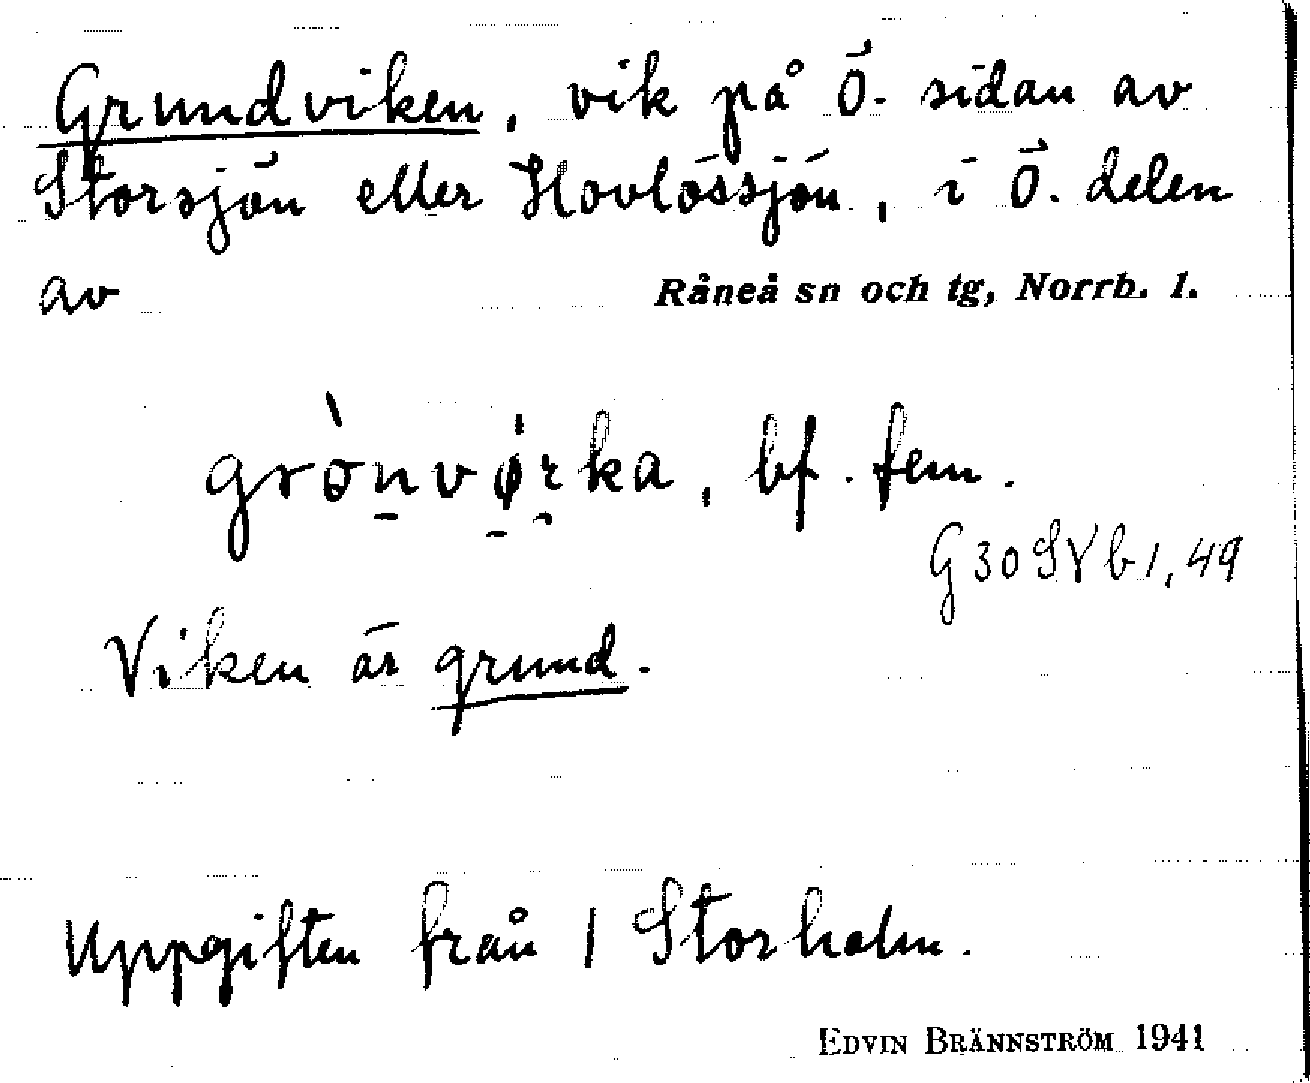 Grundviken, vik på Ö. sidan av
Storsjön eller Hovlössjön, i Ö. delen
av Råneå sn och tg, Norrb. l.
grò̠nvǿ̠rka, bf. fem.
G30SVb1,49
Viken är grund.
Uppgiften från 1 Storholm.
EDVIN BRÄNNSTRÖM 1941